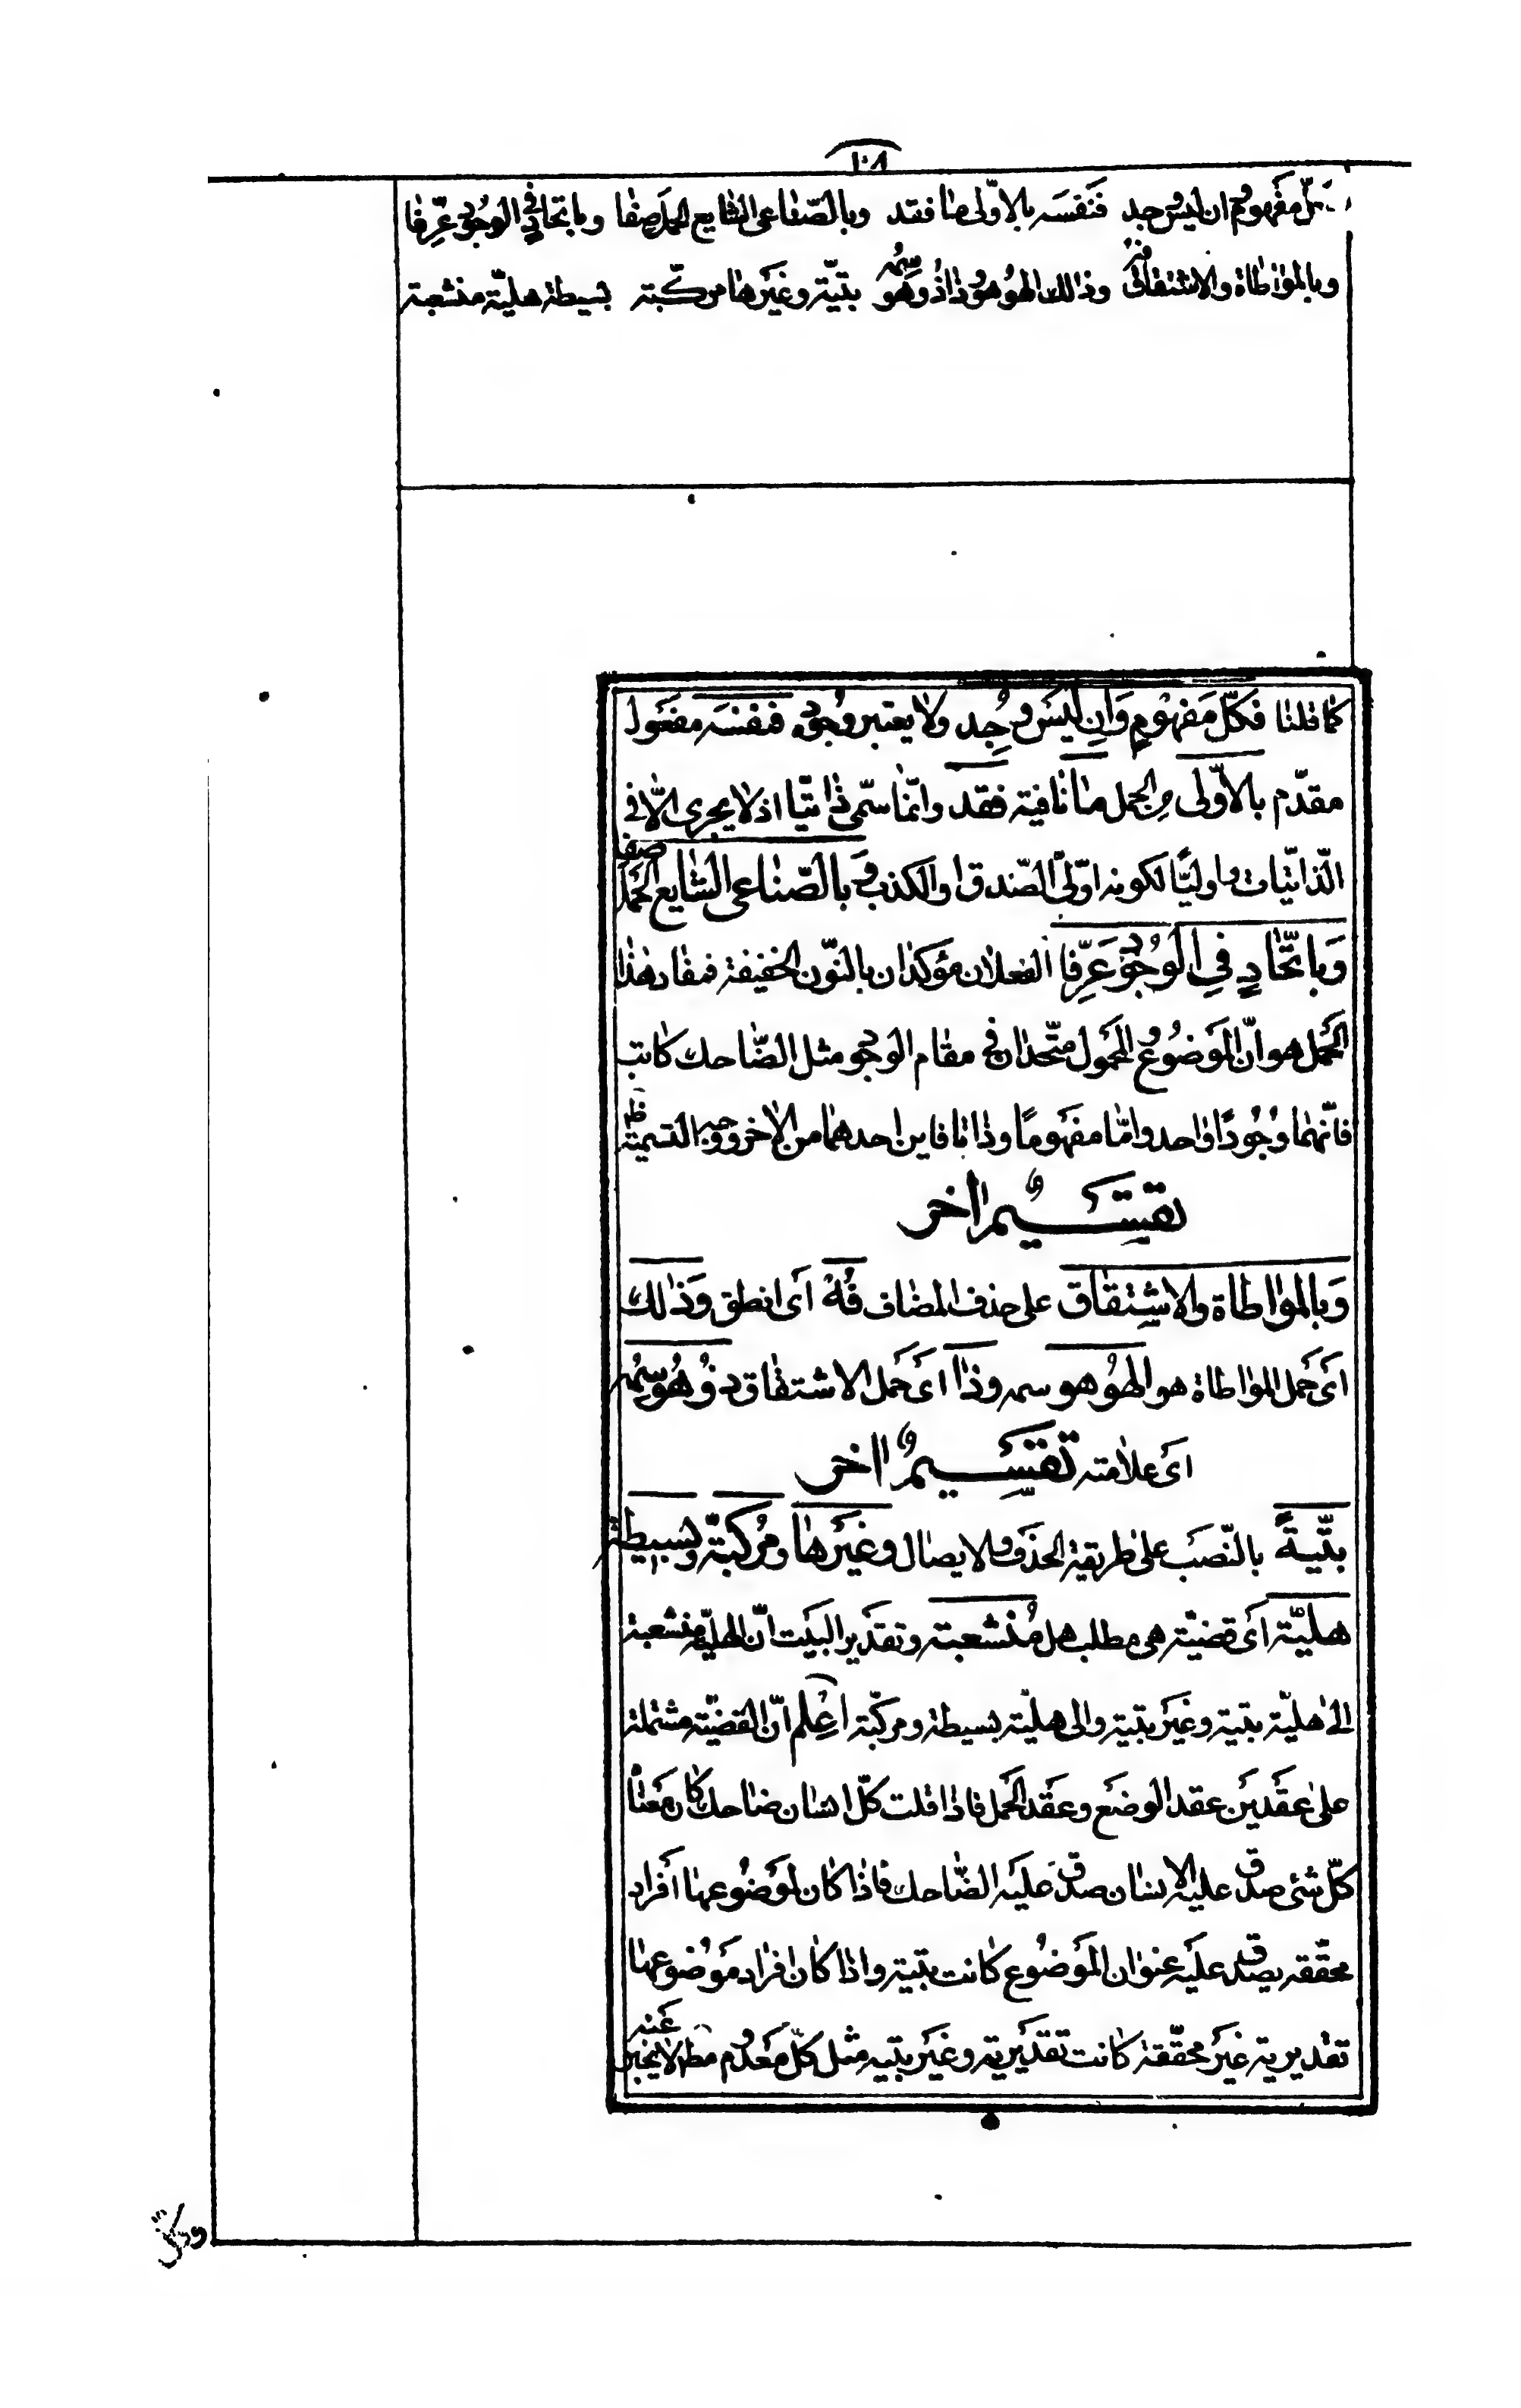 ١٠٨
كلّ مفهوم ان ليس وجد فنفسه بالاوّلى ما فقد وبالصّناعى الشّايع الحمل صفا وباتحاد فى الوجود عرّفا
وبالمواطاة والاشتقاق فُه وذلك الهو هو وذا ذو هو سمه بتّيّة وغيرها مركّبة بسيطة هليّة منشعبة
كما قلنا فكلّ مفهوم وان ليس وجد ولا يعتبر وجوده فنفسه مفعول
مقدّم بالاوّلى من الحمل ما نافية فقد وانّما سمّى ذاتيّا اذ لا يجرى الّا فى
الذّاتيّات واوليّا لكونه اوّلىّ الصّدق او الكذب وبالصّناعى الشّايع الحمل صفا
وباتّحادٍ فى الوجود عرّفا الفعلان مؤكدان بالنّون الخفيفة فمفاد هذا
الحمل هو انّ الموضوع والمحمول متّحدان فى مقام الوجود مثل الضّاحك كاتب
فانّهما وجودًا واحد وامّا مفهومًا وذاتا فاين احدهما من الاخر ووجه التسمية ظ
تقسيم اخر
وبالمواطاة والاشتقاق على حذف المضاف فُهْ اى انطق وذلك
اى حمل المواطاة هو الهو هو سمه وذا اى حمل الاشتقاق ذو هو سمه
اى علامته تقسيم اخر
بتّيّةً بالنّصب على طريقة الحذف والايصال وغيرها ومركبّة وبسيطة
هليّة اى قضيّة هى مطلب هل منشعبة وتقدير البيت انّ الهليّة منشعبة
الى هليّة بتية وغير بتية والى هليّة بسيطة ومركّبة اعلم انّ القضيّة مشتملة
على عقدين عقد الوضع وعقد الحمل فاذا قلت كلّ انسان ضاحك كان معناه
كلّ شئى صدق عليه الانسان صدق عليه الضّاحك فاذا كان لموضوعها افراد
محقّقه يصدق عليه عنوان الموضوع كانت بتية واذا كان افراد موضوعها
تقديرية غير محقّقة كانت تقديرية وغير بتيه مثل كلّ معدوم مطلق لا يخبر عنه
وكلّ